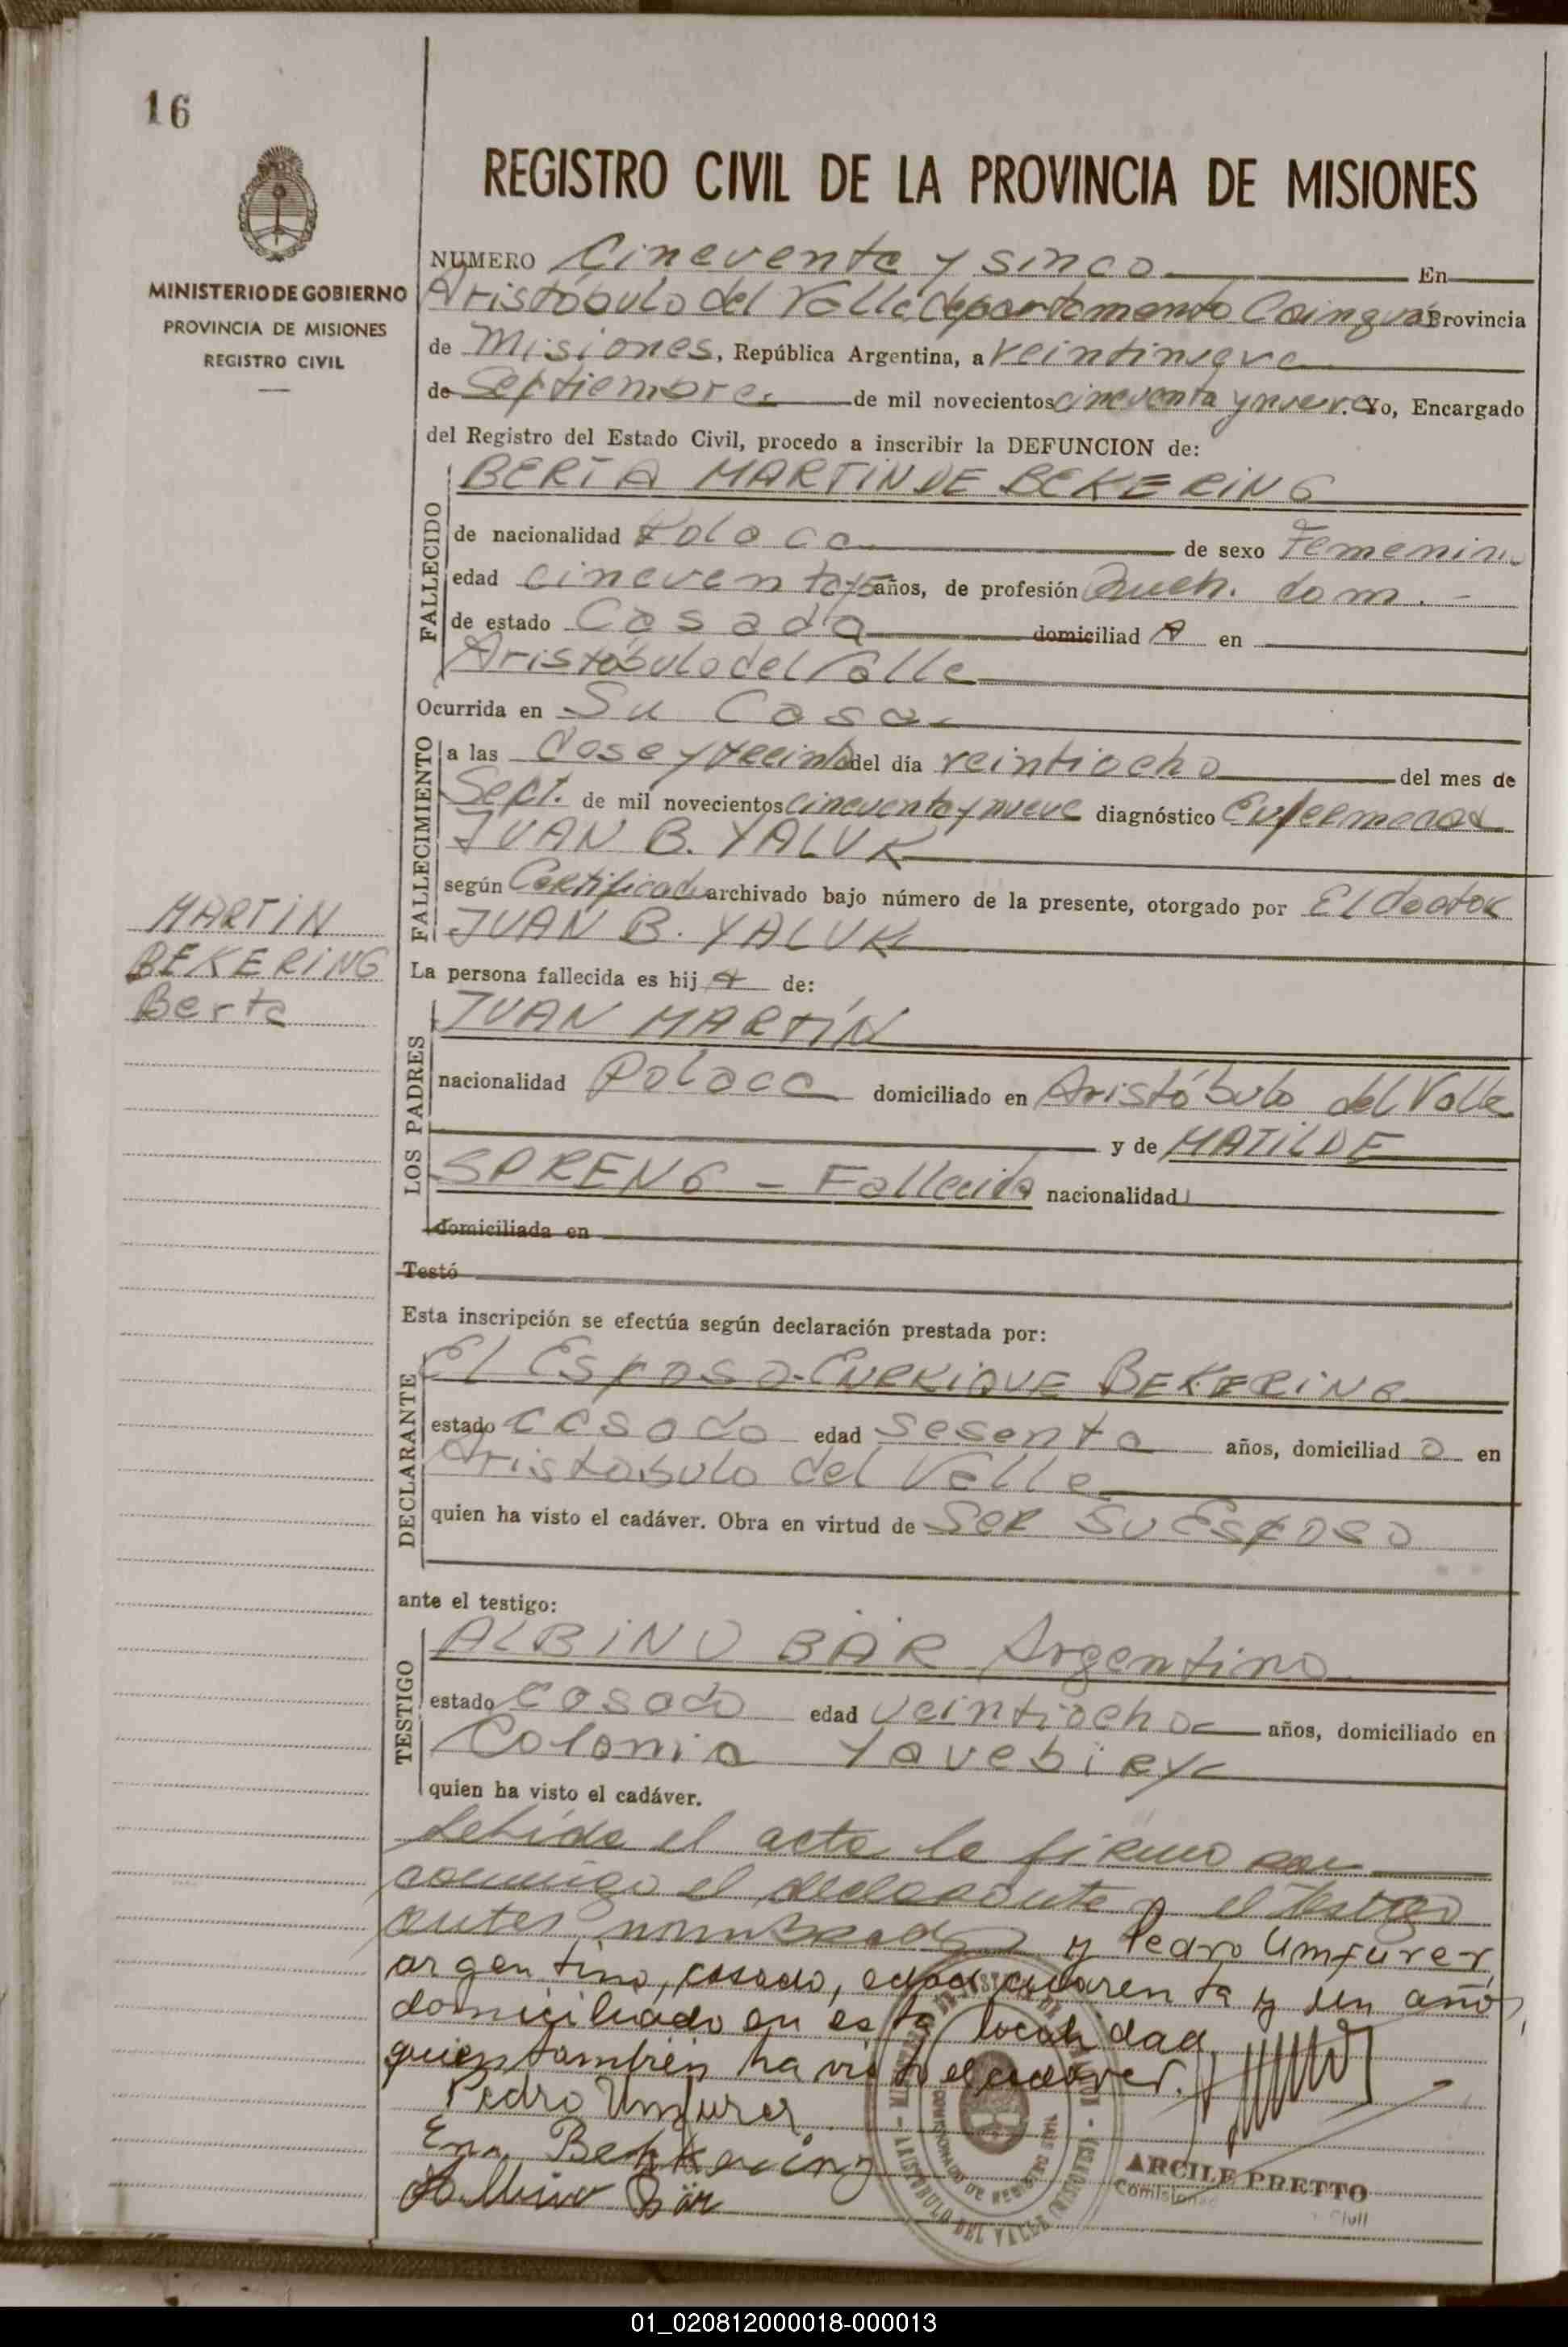 16
REGISTRO CIVIL DE LA PROVINCIA DE MISIONES
MINISTERIO DE GOBIERNO
PROVINCIA DE MISIONES
REGISTRO CIVIL
NUMERO Cincuenta y sinco En
Aristóbulo del Valle, departamento Cainguás Provincia
de Misiones, República Argentina, a veintinueve
de Septiembre de mil novecientos cincuenta y nueve. Yo, Encargado
del Registro del Estado Civil, procedo a inscribir la DEFUNCION de:
BERTA MARTIN DE BEKERING
FALLECIDO
de nacionalidad Polaca de sexo Femenino
edad cincuenta y 5 años, de profesión Queh. dom. -
de estado Casada domiciliad A en
Aristóbulo del Valle
Ocurrida en Su Casa
FALLECIMIENTO
a las dose y treinta del día veintiocho del mes de
Sept. de mil novecientos cincuenta y nueve diagnóstico Enfermedad
JUAN B. YALUK
según Certificado archivado bajo número de la presente, otorgado por El doctor
JUAN B. YALUK
MARTIN
BEKERING
Berta
La persona fallecida es hij a de:
LOS PADRES
JUAN MARTÍN
nacionalidad Polaca domiciliado en Aristóbulo del Valle
y de MATILDE
SPRENG - Fallecida nacionalidad
domiciliada en
Testó
Esta inscripción se efectúa según declaración prestada por:
DECLARANTE
El Esposo - ENRRIQUE BEKERING
estado casado edad sesenta años, domiciliad o en
Aristobulo del Valle
quien ha visto el cadáver. Obra en virtud de ser su Esposo
ante el testigo:
TESTIGO
ALBINO BÄR Argentino
estado casado edad veintiocho años, domiciliado en
Colonia Yavebiry
quien ha visto el cadáver.
Lehida el acta la firmo con
conmigo el declarante y el testigo
antes nombrado y Pedro Umfurer,
argentino, casado, edad cuarenta y un año,
domiciliado en esta localidad
quien también ha visto el cadáver.
Pedro Umfurer
Bekkering
Albino Bär
ARISTÓBULO DEL VALLE (MISIONES)
ARCILE PRETTO
01_020812000018-000013